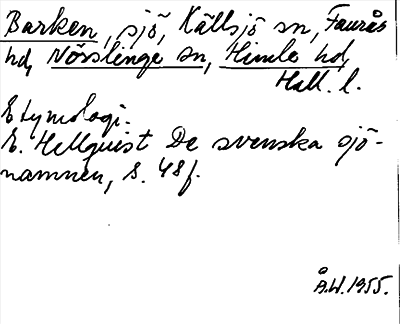 Barken, sjö, Källsjö sn, Faurås
hd, Nösslinge sn, Himle hd,
Hall. l.
Etymologi.
E. Hellquist De svenska sjö-
namnen, s. 48f.
Å.W. 1955.